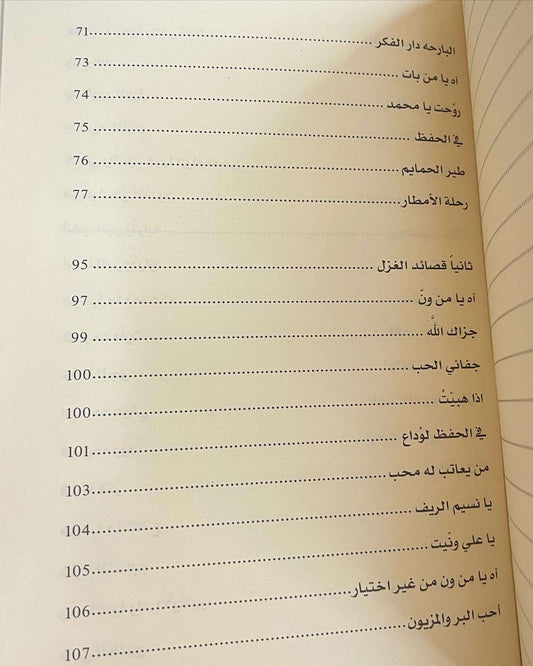 البارحه دار الفكر ........ 71
آه يا من بات ........ 73
روّحت يا محمد ........ 74
في الحفظ ........ 75
طير الحمايم ........ 76
رحلة الأمطار ........ 77
ثانياً قصائد الغزل ........ 95
آه يا من ونّ ........ 97
جزاك الله ........ 99
جفاني الحب ........ 100
اذا هبيّتْ ........ 100
في الحفظ لوْداع ........ 101
من يعاتب له محب ........ 103
يا نسيم الريف ........ 104
يا علي ونّيت ........ 105
آه يا من ون من غير اختيار ........ 106
أحب البر والمزيون ........ 107